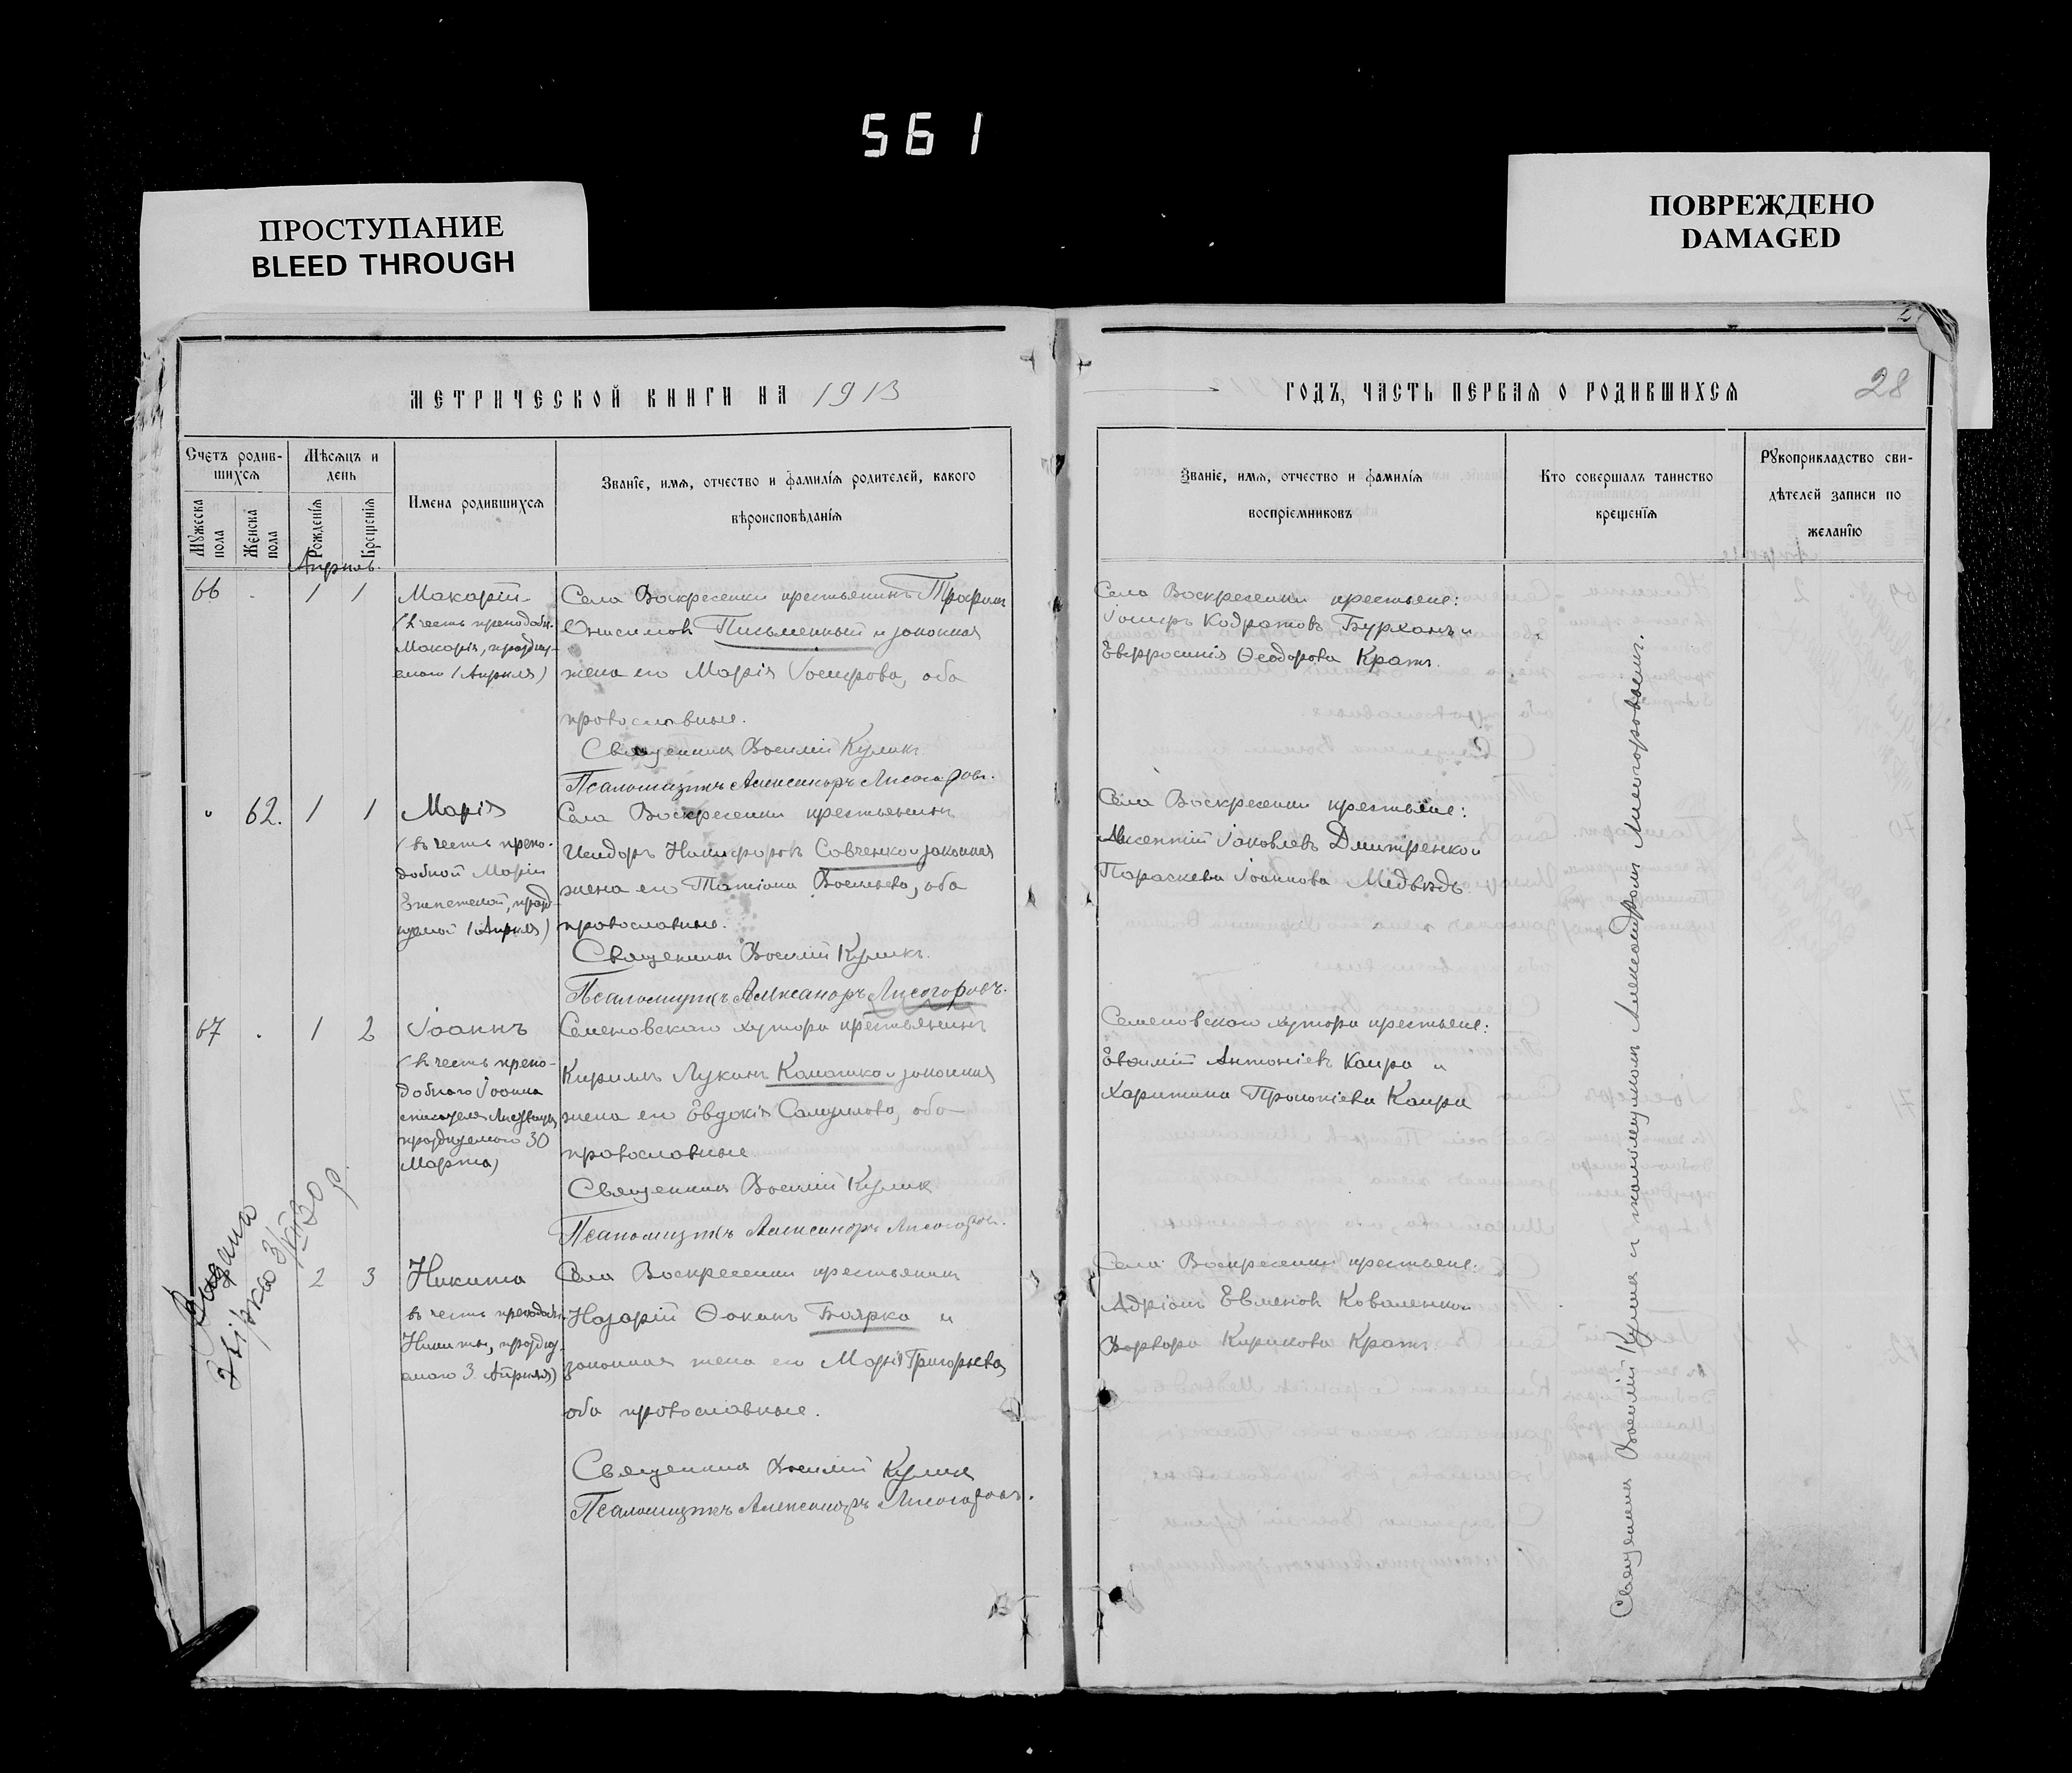 561
ПРОСТУПАНИЕ
BLEED THROUGH
ПОВРЕЖДЕНО
DAMAGED
МЕТРИЧЕСКОЙ КНИГИ НА 1913
Счетъ родив-
шихся
Мѣсяцъ и
день
Мужеска пола
Женска пола
Рожденія
Крещенія
Имена родившихся
Званіе, имя, отчество и фамилія родителей, какого
вѣроисповѣданія
Апрѣль.
66 1 1
Макарій
(въ честь преподобн.
Макарія, праздну-
емаго 1 Апрѣля)
Села Воскресенки крестьянинъ Трофимъ
Онисимовъ Письменный и законная
жена его Марія Іосифова, оба
православные.
Священникъ Василій Куликъ
Псаломщикъ Александръ Лисогоровъ.
" 62. 1 1
Марія
(въ честь препо-
добной Маріи
Египетской, празд-
нуемой 1 Апрѣля)
Села Воскресенки крестьянинъ
Исидоръ Никифоровъ Савченко и законная
жена его Татіана Васильева, оба
православные.
Священникъ Василій Куликъ.
Псаломщикъ Александръ Лисогоровъ.
67 1 2
Іоаннъ
(въ честь препо-
добнаго Іоанна
списателя Лѣствицы,
празднуемаго 30
Марта)
Семеновскаго хутора крестьянинъ
Кириллъ Лукинъ и законная
жена его Евдокія Самуилова, оба
православные
Священникъ Василій Куликъ
Псаломщикъ Александръ Лисогоровъ.
Видано
3/VII 30 р.
2 3
Никита
въ честь преподобн.
Никиты, праздну-
емаго 3 Апрѣля)
Села Воскресенки крестьянинъ
Назарій Ѳокинъ Боярко и
законная жена его Марія Григорьева,
оба православные.
Священникъ Василій Куликъ
Псаломщикъ Александръ Лисогоровъ.
ГОДЪ, ЧАСТЬ ПЕРВАЯ О РОДИВШИХСЯ
28
Званіе, имя, отчество и фамилія
воспріемниковъ
Кто совершалъ таинство
крещенія
Рукоприкладство сви-
дѣтелей записи по
желанію
Села Воскресенки крестьяне:
Іосифъ Кодратовъ Бурханъ и
Евфросинія Ѳеодорова Кратъ.
Села Воскресенки крестьяне:
Авксентій Іаковлевъ Дмитренко и
Параскева Іоаннова Медвѣдь.
Семеновскаго хутора крестьяне:
Евѳимій Антоніевъ Каира и
Харитина Прокопіева Каира
Села Воскресенки крестьяне:
Адріанъ Евменовъ Коваленко и
Варвара Кирикова Кратъ.
Священникъ Василій Куликъ и псаломщикомъ Александромъ Лисогоровымъ.